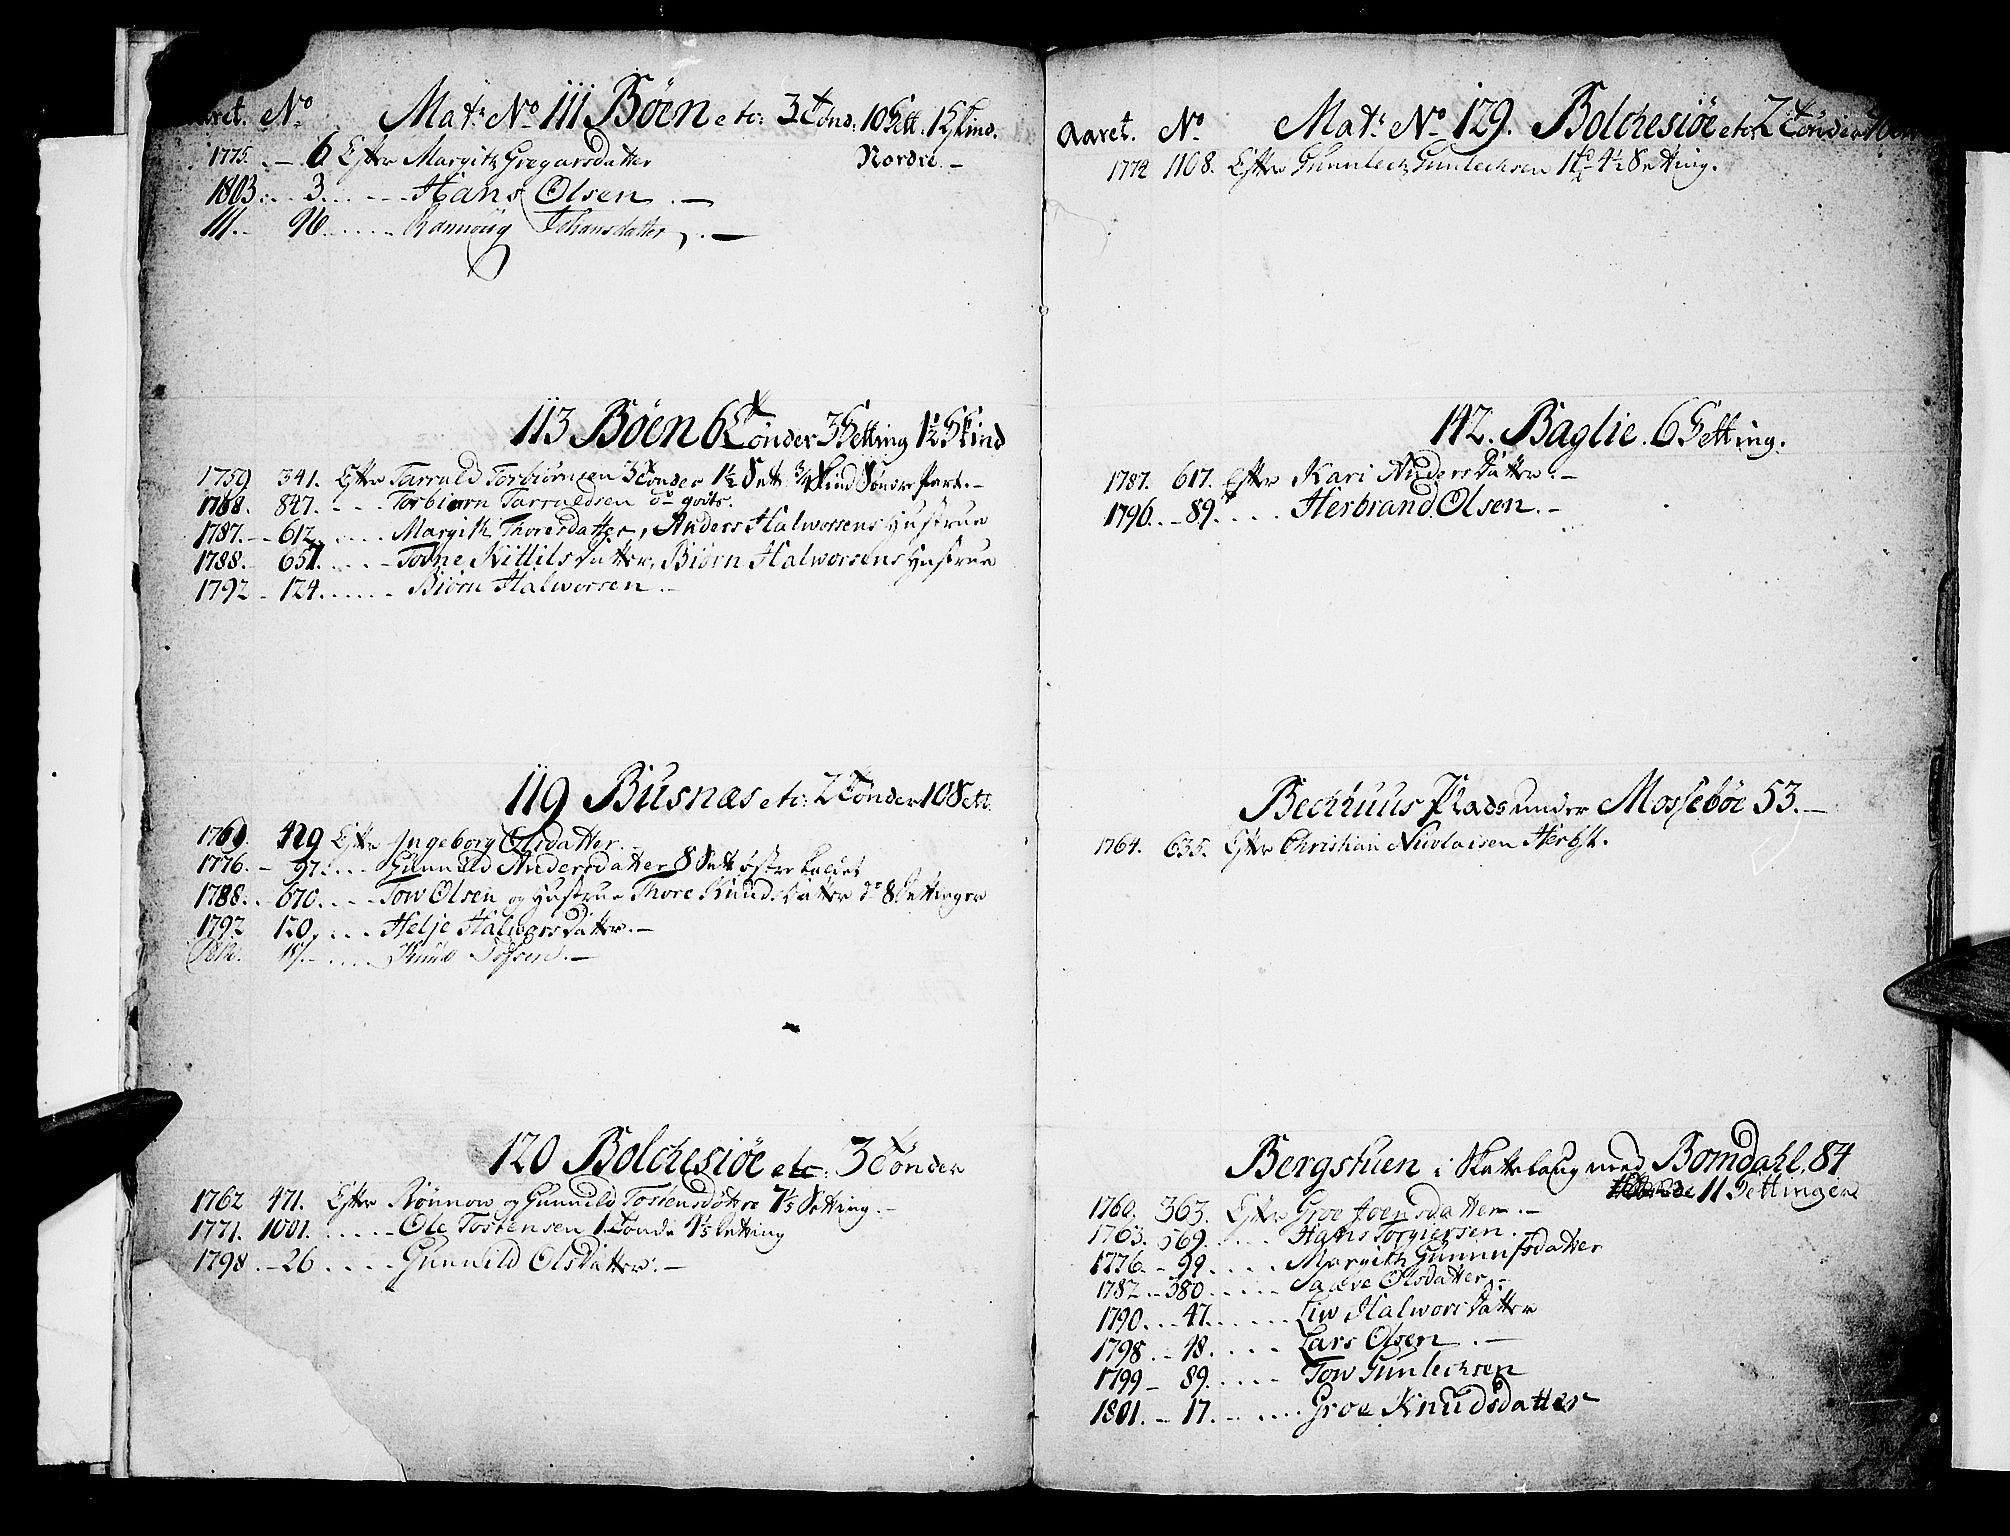 Aaret. No Matr No 111 Böen etc: 3 Tönd: 10 Sett. 1 Skind.
1775. - 6 Efter Margith Gregarsdatter Nordre. -
1803. . 3. . . . Hans Olsen. -
111. - 96. . . . . . Rannoug Johansdatter. -
113 Böen 6 Tönder 3 Setting 1½ Skind
1759 341. Efter Tarrald Torbiörnsen 3 Tönder 1½ Sett: ¾ Skind Söndre Part. -
1768. 847. - - - Torbiörn Tarraldsen do gods.
1787. - 612. . . . . Margith Thoresdatter, Anders Halworsens Hustrue
1788. - 651. . . . . Tone Kittilsdatter, Biörn Halworsens Hustrue
1792 - 124. . . . . . Biörn Halworsen. -
119 Busnæs etc: 2 Tönder 10 Sett.
1761. 429 Efter Ingeborg Olsdatter. -
1776. - 97. . . . Gunnild Andersdatter 8 Sett östre
1788. . 670. . . . . Tow Olsen og Hustrue Thore Knudsdatter do 8 Settinger
1792 120. . . . Helje Halworsdatter. -
1812. 18. - . . . . Knud -
120 Bolchesiöe etc: 3 Tönder
1762 471. Efter Rönnow og Gunnild Tostensdöttre 7½ Setting. -
1771. 1001. . . . . . Ole Tostensen 1. Tönde 1½ Setting
1798. - 26 . . . . . Gunnild Olsdatter. -
Aaret. No Matr No 129. Bolchesiöe etc: 2 Tönder
1774 1108. Efter Gunnlech Gunlechsen 4½ Setting.
142. Baglie. 6 Setting.
1787. 617. Efter Kari Andersdatter. -
1796. - 89. . . . . Herbrand Olsen. -
Bechhuus Plads under Mosseböe 53. -
1764. 635. Efter Christian Nicolaisen Herbst.
Bergstuen i Skattelaug med Bomdahl 84
11 Settinger
1760. 363. Efter Groe Joensdatter. -
1763. 569. . . . . Hans Torgiersen. -
1776. - 99. . . . . Margith Gunnufsdatter
1782. - 380. . . . . Olsdatter. -
1790. . . 47. . . . . . Liw Halworsdatter
1798. . - 18. . . . . Lars Olsen . -
1799 - 89. . . . . Tow Gunlechsen
1801. - 17. - . . . . Groe Knudsdatter